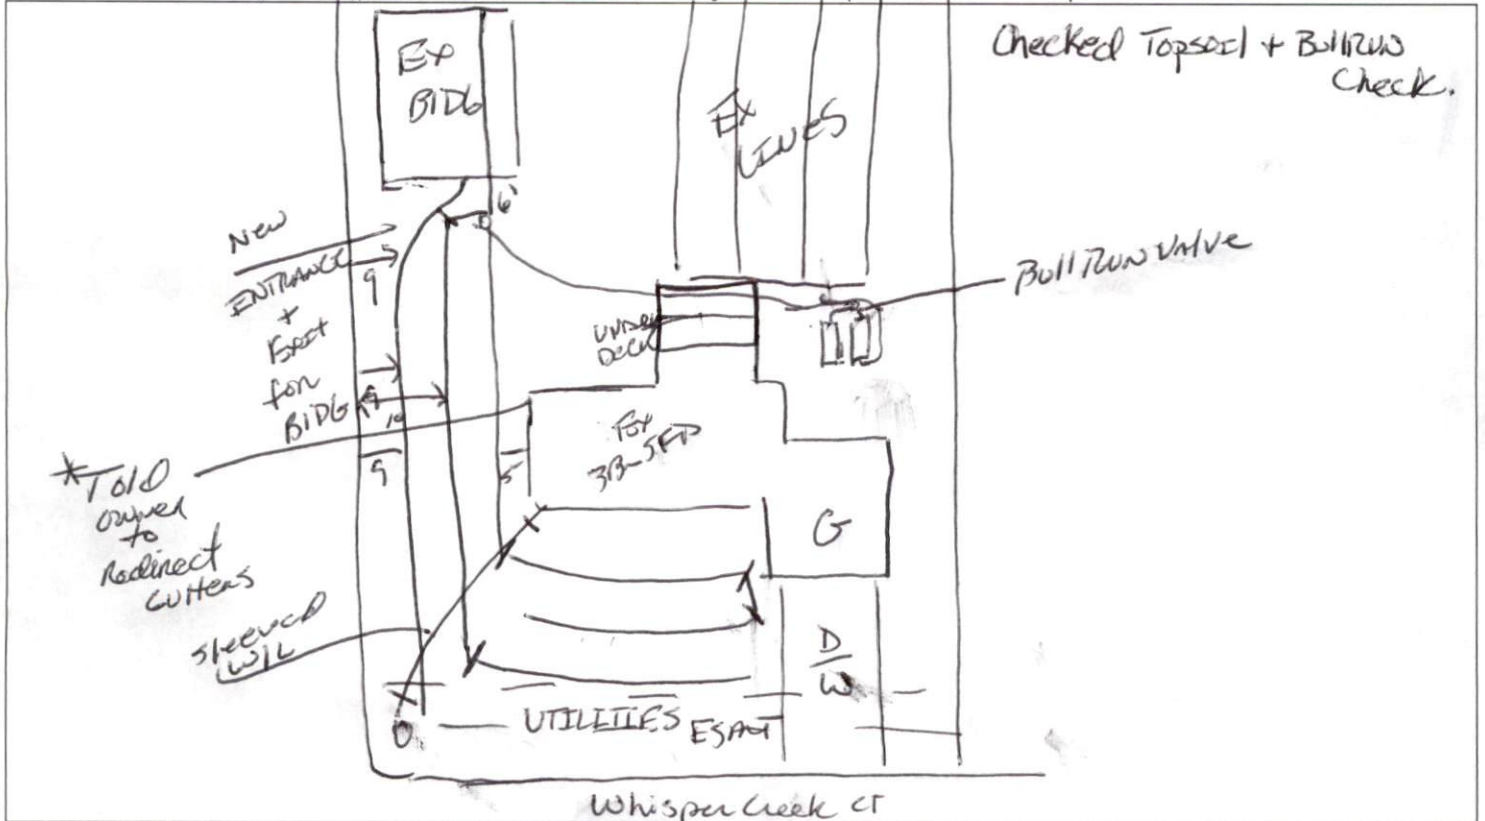 Checked Topsoil + BullRun
Check.
Ex
BlDG
Ex
LINES
6'
New
ENTRANCE
+
Exit
for
BlDG
9
9
10
9
5
Bull Run Valve
UNDER
Deck
Ex
3B-SFD
*Told
owner
to
Redirect
Gutters
G
sleeved
W/L
D/W
UTILITIES ESMT
Whisper Creek CT